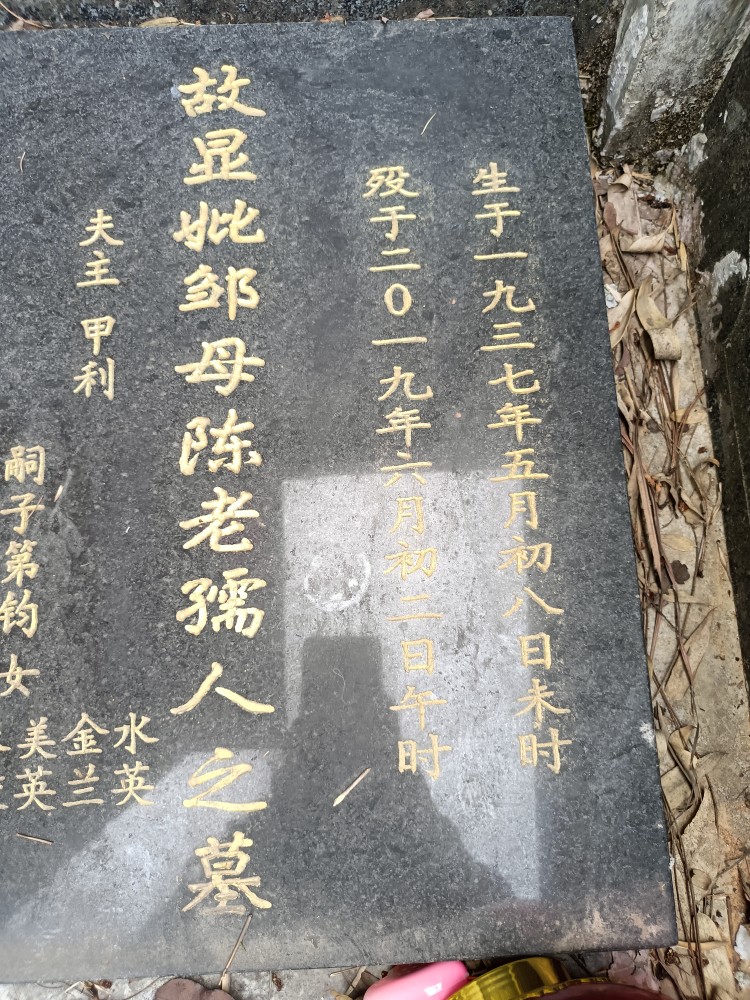 生于一九三七年五月初八日未时
殁于二0一九年六月初二日午时
故显妣邹母陈老孺人之墓
夫主甲利
水英
金兰
美英
嗣子第钧女